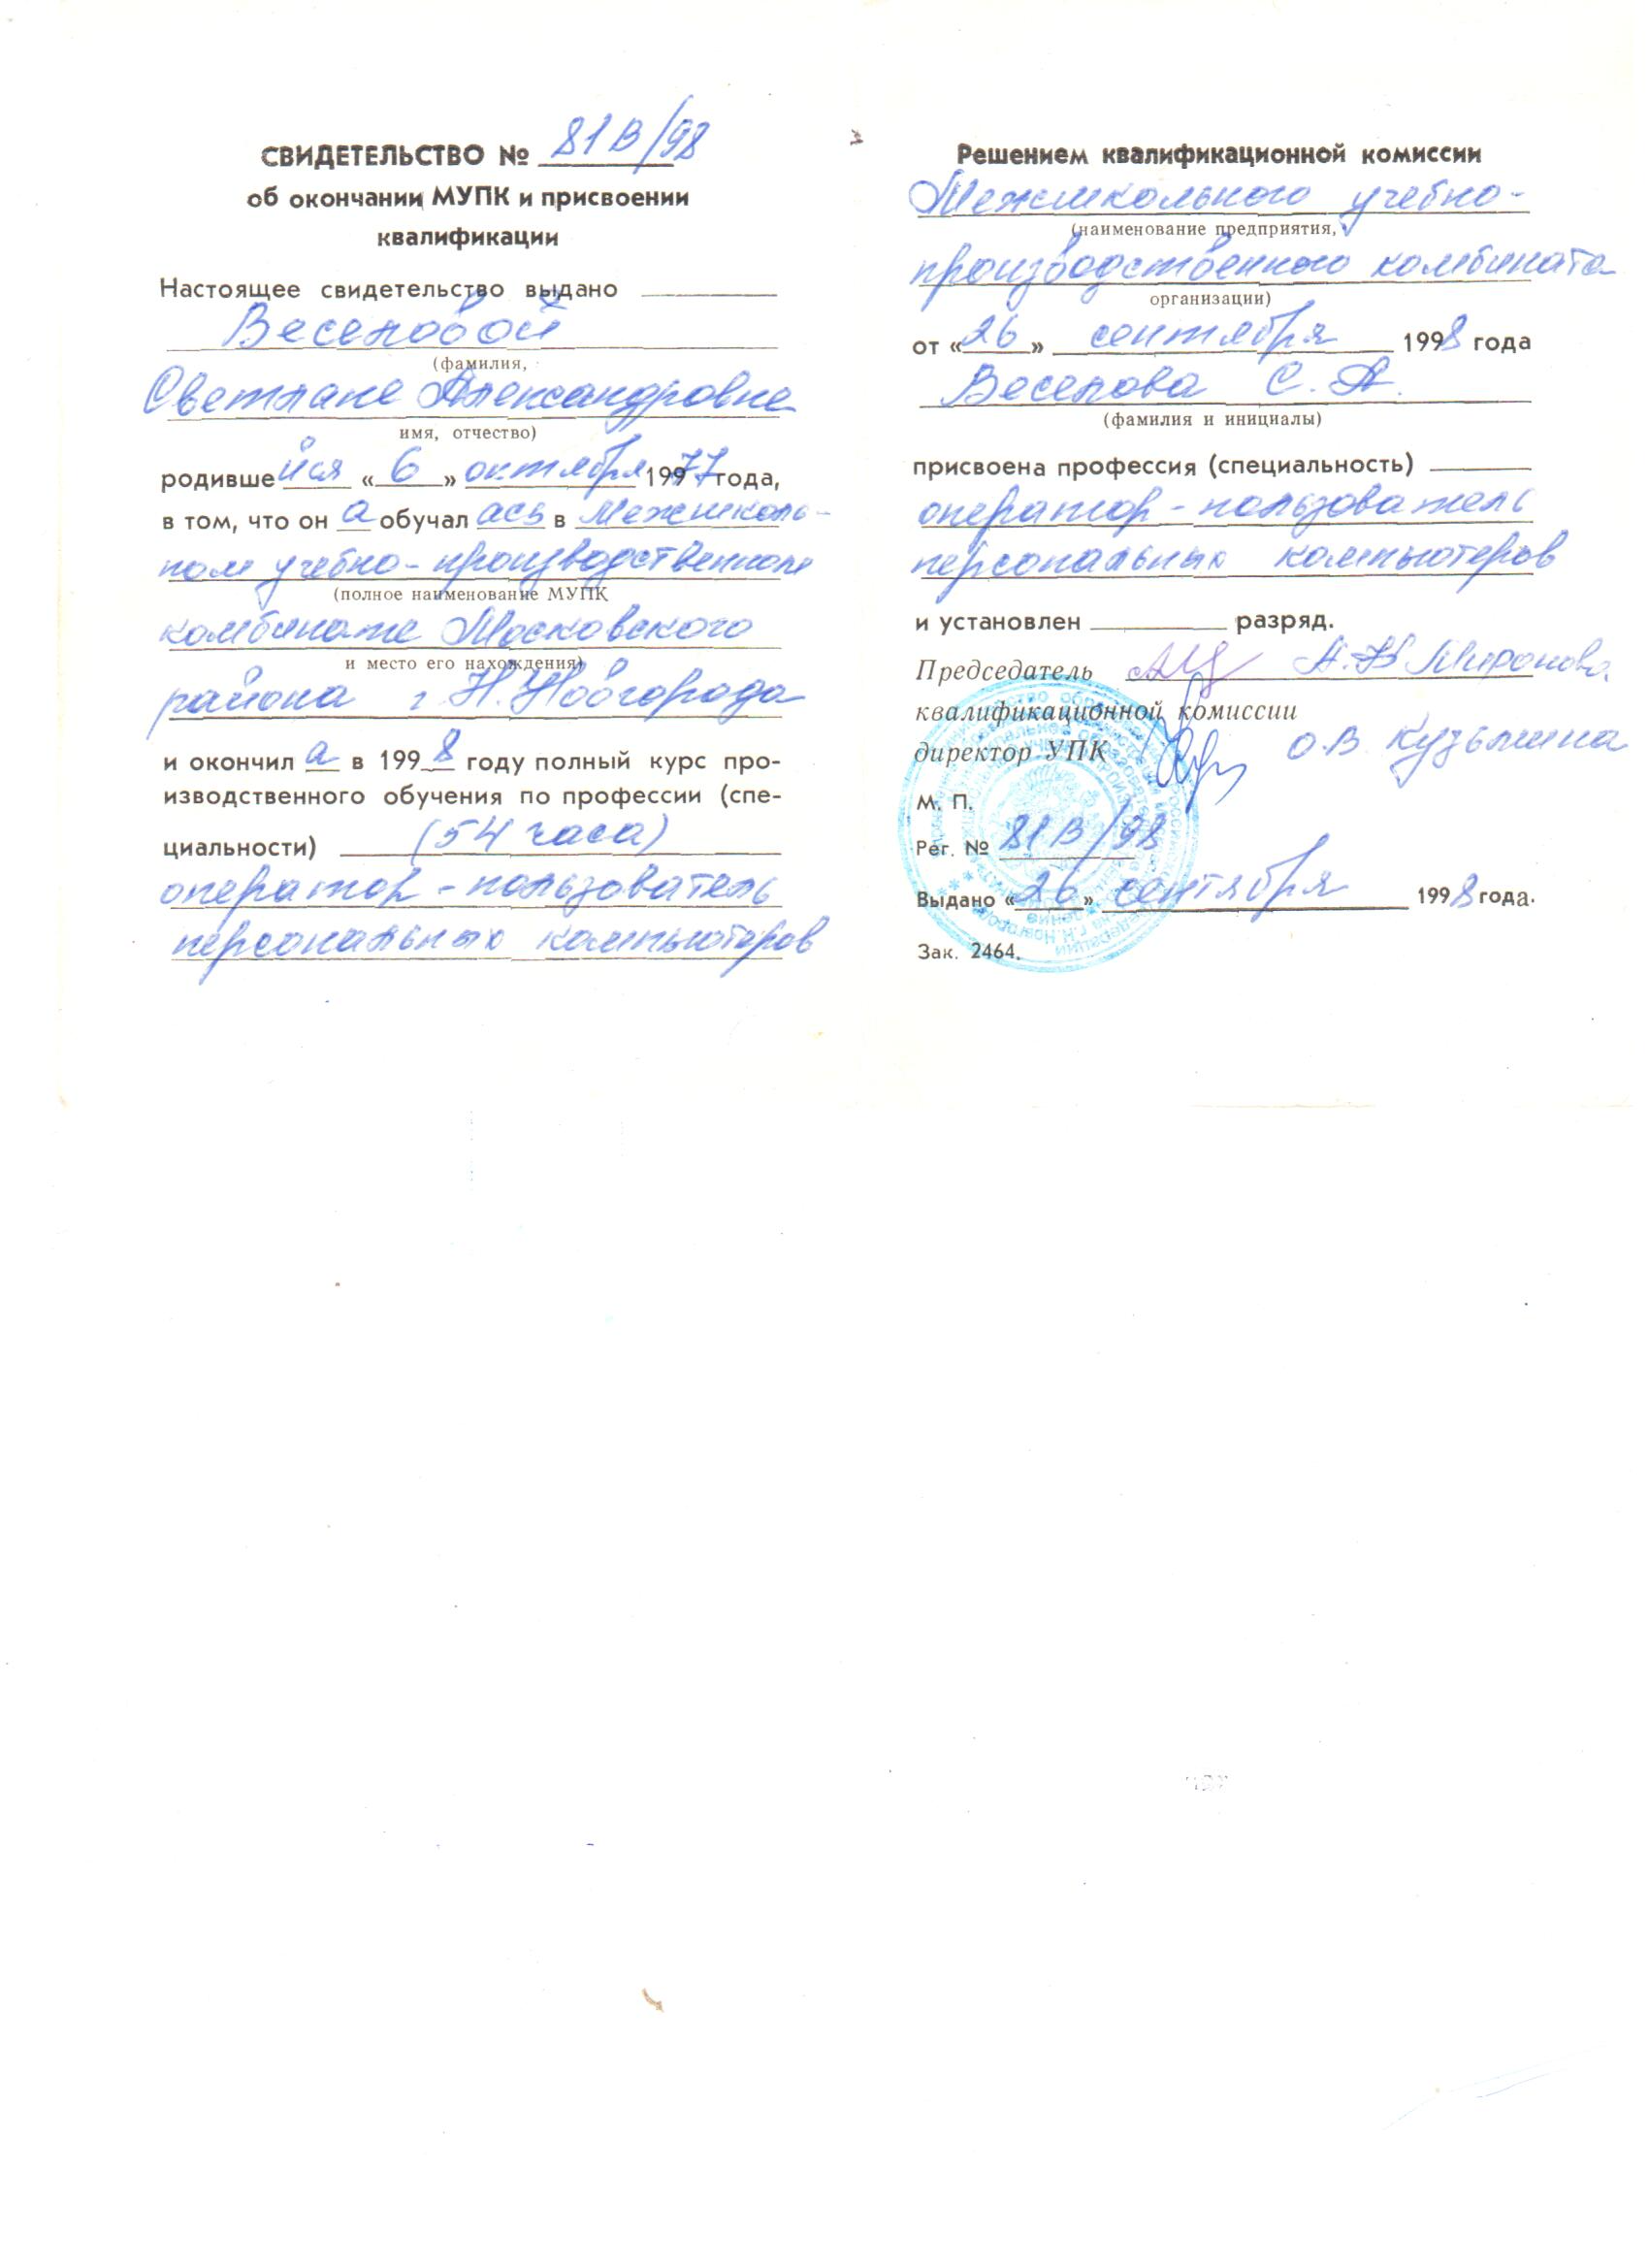 СВИДЕТЕЛЬСТВО № 81В/98
об окончании МУПК и присвоении
квалификации
Настоящее свидетельство выдано
Веселовой
(фамилия,
Светлане Александровне
имя, отчество)
родившейся «6» октября 19977года,
в том, что он а обучал ась в Межшколь-
ном учебно-производственном
(полное наименование МУПК
комбинате Московского
и место его нахождения)
района г. Н. Новгорода
и окончил а в 1998 году полный курс про-
изводственного обучения по профессии (спе-
циальности) (54 часа)
оператор-пользователь
персональных компьютеров
Решением квалификационной комиссии
Межшкольного учебно-
(наименование предприятия,
производственного комбината
организации)
от «26» сентября 1998 года
Веселова С. А.
(фамилия и инициалы)
присвоена профессия (специальность)
оператор-пользователь
персональных компьютеров
и установлен разряд.
Председатель Миронова
квалификационной комиссии
директор УПК О.В. Кузьмина
М. П.
Рег. № 81В/98
Выдано «26» сентября 1998 года.
Зак. 2464.